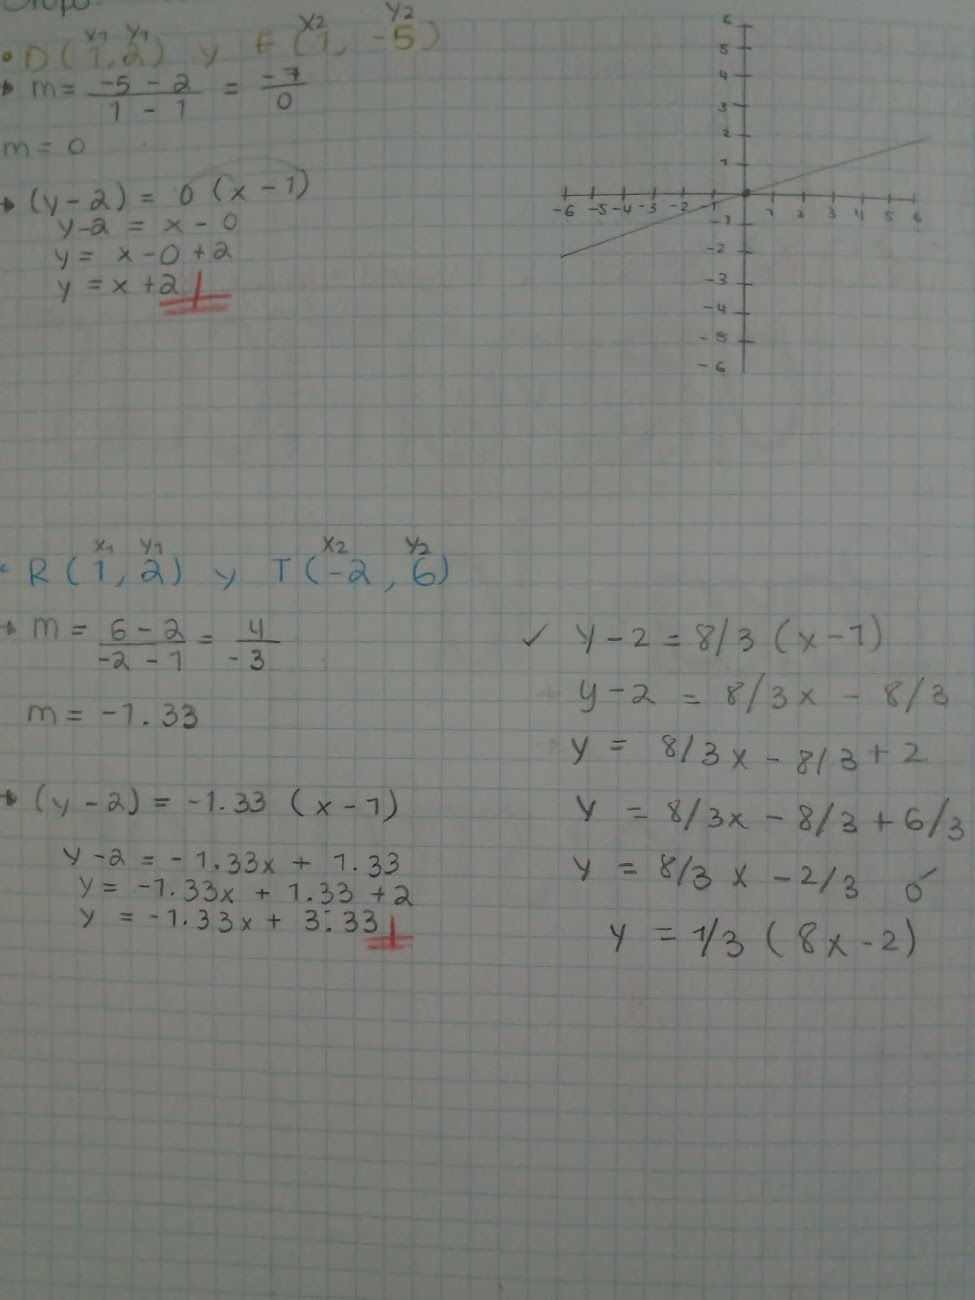 x1 y1 x2 y2
• D (1, 2) y F (1, -5)
m = -5 - 2 / 1 - 1 = -7 / 0
m = 0
(y - 2) = 0 (x - 1)
y - 2 = x - 0
y = x - 0 + 2
y = x + 2
6
5
4
3
2
1
-6 -5 -4 -3 -2 -1 1 2 3 4 5 6
-1
-2
-3
-4
-5
-6
x1 y1 x2 y2
• R (1, 2) y T (-2, 6)
m = 6 - 2 / -2 - 1 = 4 / -3
m = -1.33
(y - 2) = -1.33 (x - 1)
y - 2 = -1.33x + 1.33
y = -1.33x + 1.33 + 2
y = -1.33x + 3.33
✓ y - 2 = 8/3 (x - 1)
y - 2 = 8/3x - 8/3
y = 8/3x - 8/3 + 2
y = 8/3x - 8/3 + 6/3
y = 8/3 x - 2/3 ó
y = 1/3 (8x - 2)